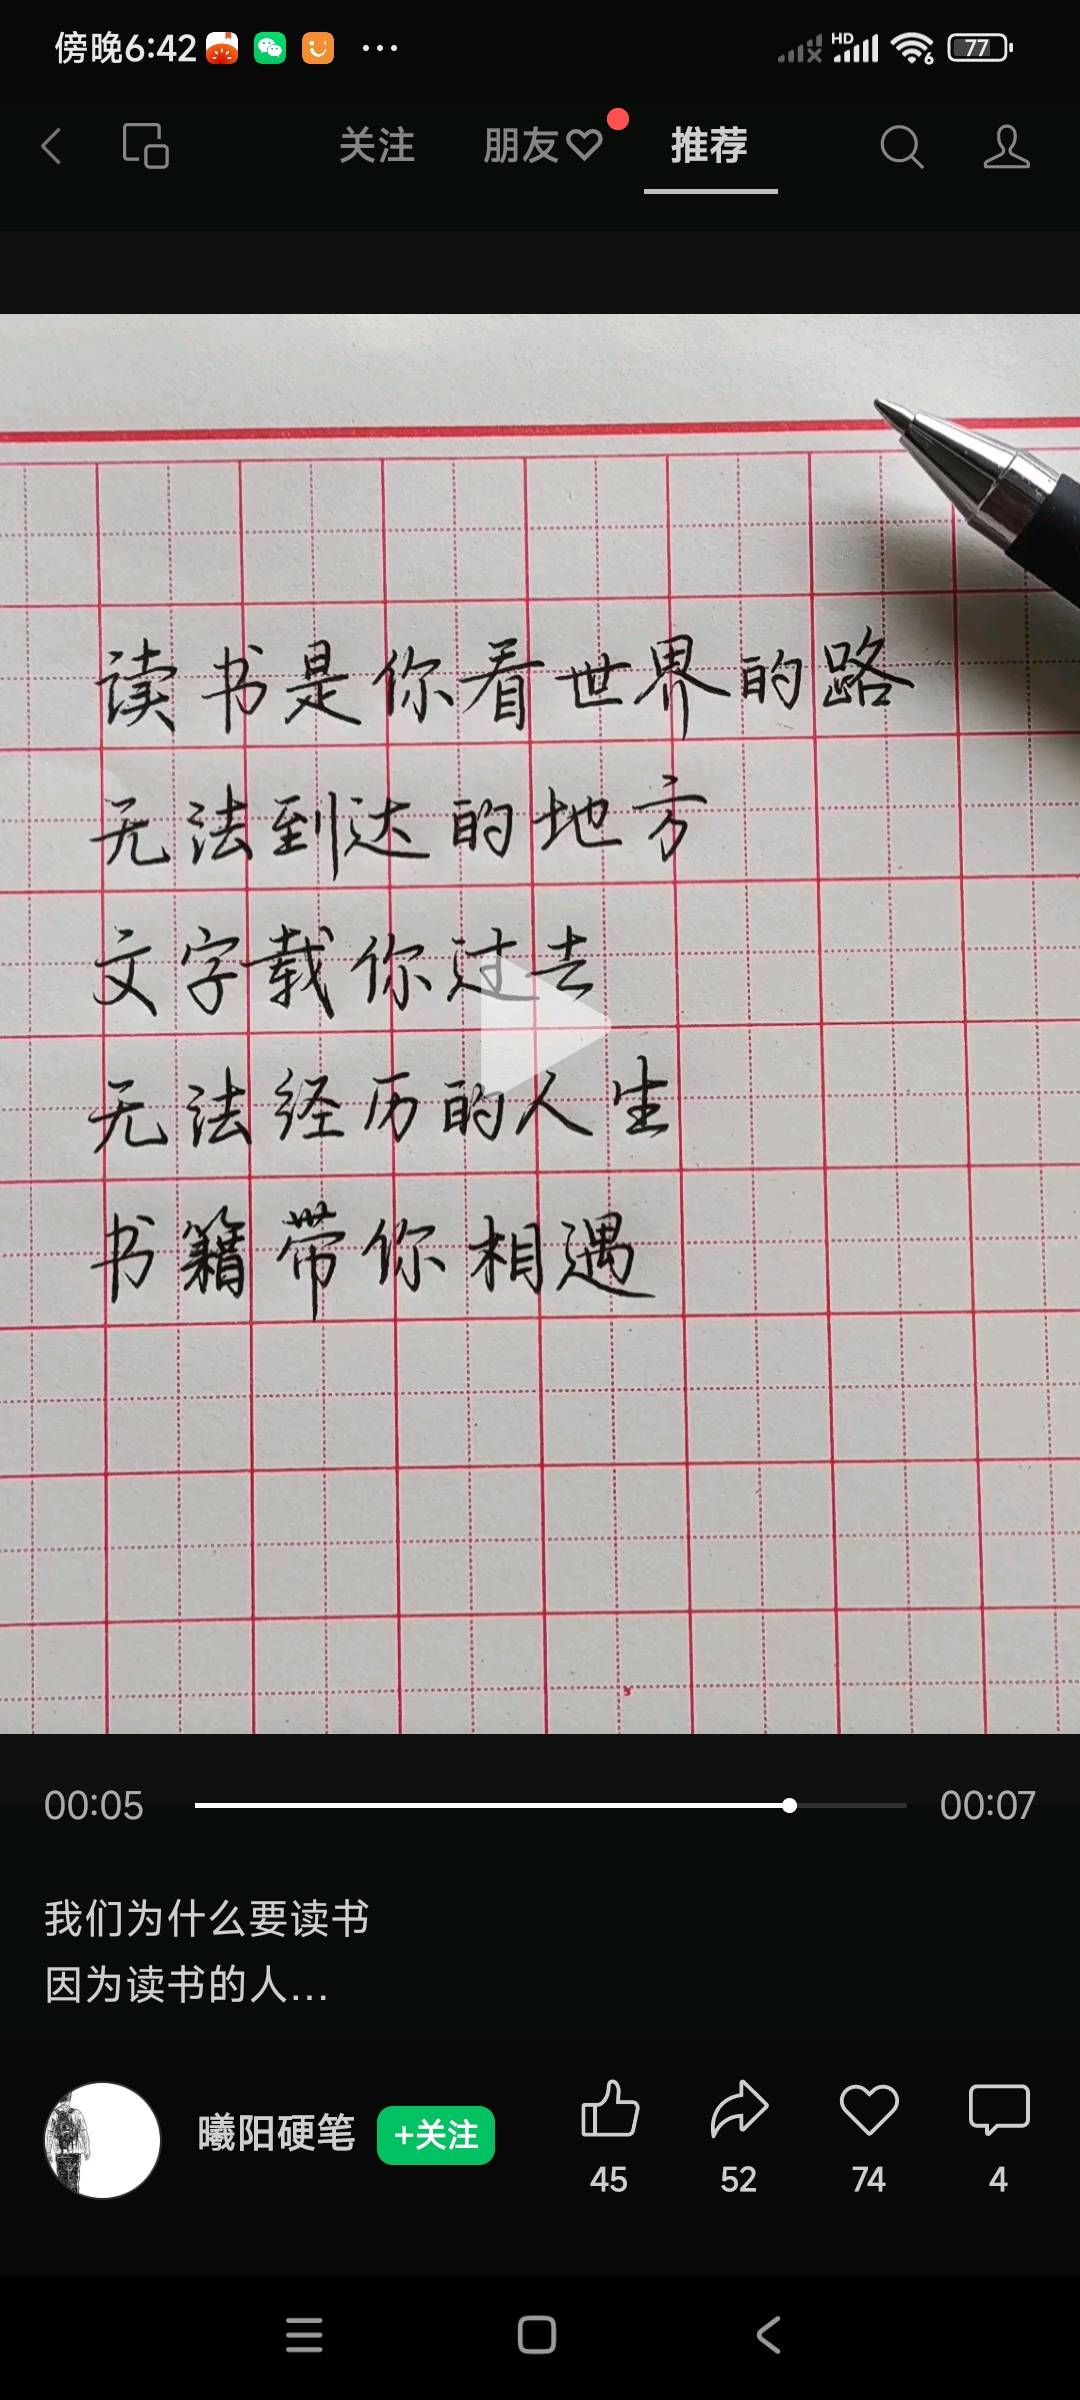 傍晚6:42
HD
6
77
关注 朋友 推荐
读书是你看世界的路
无法到达的地方
文字载你过去
无法经历的人生
书籍带你相遇
00:05 00:07
我们为什么要读书
因为读书的人...
曦阳硬笔 +关注
45 52 74 4